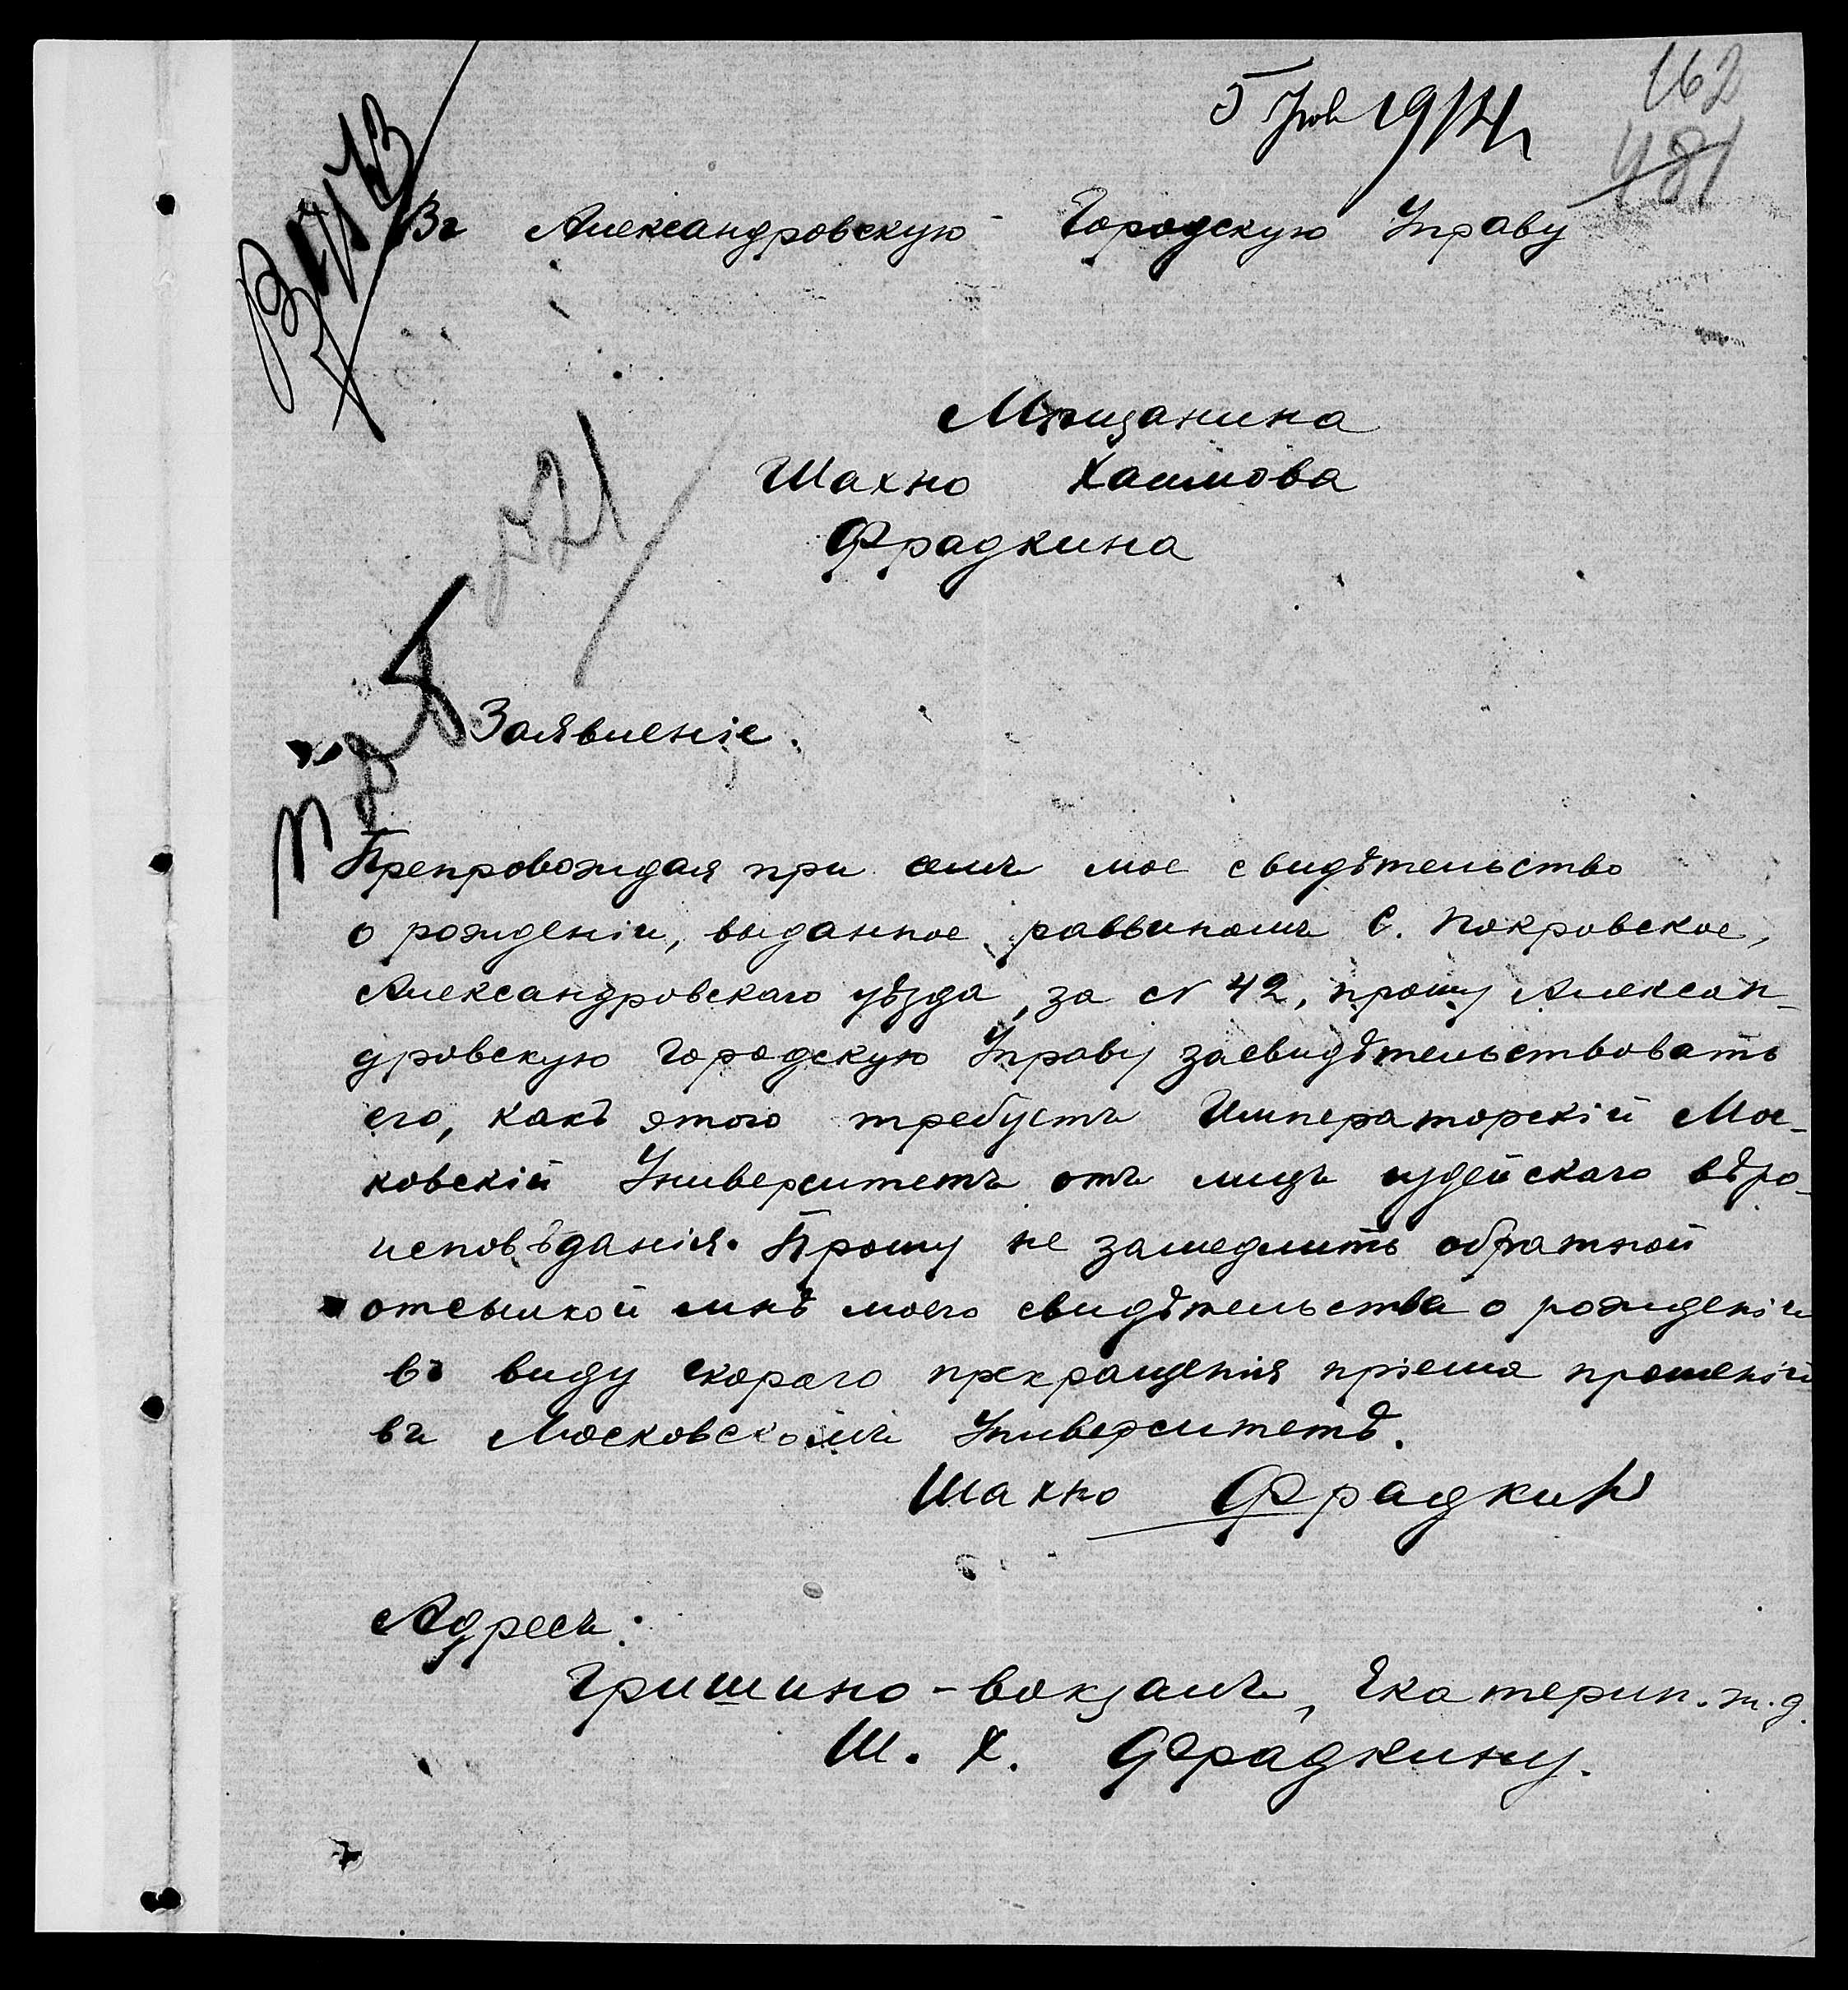 162
5 Іюл 1914 г
481
Въ Александровскую Городскую Управу
Мѣщанина
Шахно Хаимова
Фрадкина
Заявленіе.
Препровождая при семъ мое свидѣтельство
о рожденіи, выданное раввиномъ С. Покровское,
Александровскаго уѣзда, за № 42, прошу Алексан-
дровскую Городскую Управу засвидѣтельствовать
его, какъ этого требуетъ Императорскій Мос-
ковскій Университетъ отъ лицъ іудейскаго вѣро-
исповѣданія. Прошу не замедлить обратной
отсылкой мнѣ моего свидѣтельства о рожденіи
въ виду скораго прекращенія пріема прошеній
въ Московскомъ Университетѣ.
Шахно Фрадкин
Адресъ:
Гришино-вокзалъ, Екатерин. ж. д.
Ш. Х. Фрадкину.